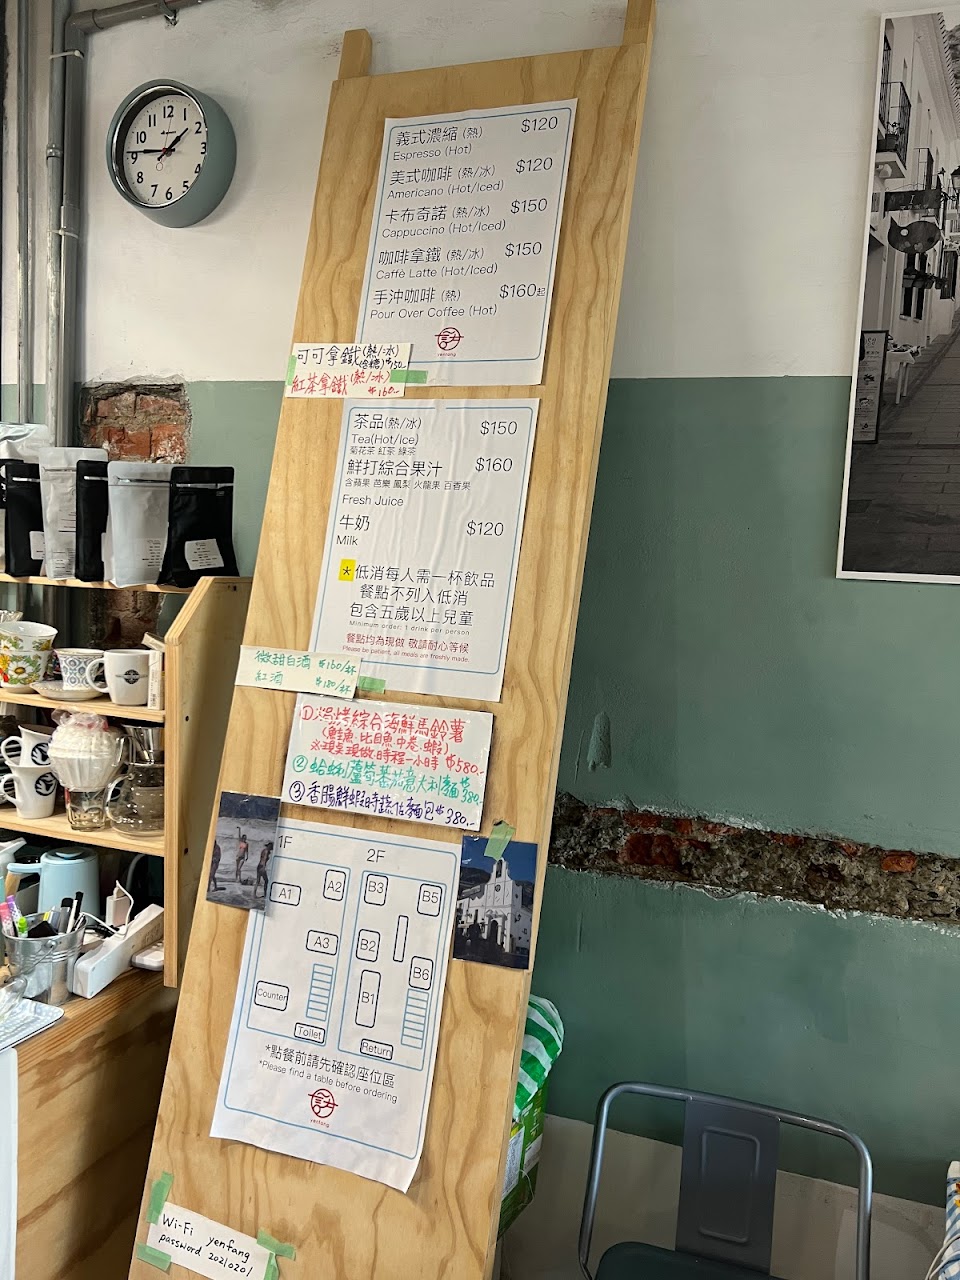 12
1
2
3
4
5
6
7
8
9
10
11
義式濃縮 (熱) $120
Espresso (Hot)
美式咖啡 (熱/冰) $120
Americano (Hot/Iced)
卡布奇諾 (熱/冰) $150
Cappuccino (Hot/Iced)
咖啡拿鐵 (熱/冰) $150
Caffè Latte (Hot/Iced)
手沖咖啡 (熱) $160起
Pour Over Coffee (Hot)
yenfang
可可拿鐵(熱/冰)
(含糖) $150-
紅茶拿鐵(熱/冰)
$160-
茶品(熱/冰) $150
Tea(Hot/Ice)
菊花茶 紅茶 綠茶
鮮打綜合果汁 $160
含蘋果 芭樂 鳳梨 火龍果 百香果
Fresh Juice
牛奶 $120
Milk
*低消每人需一杯飲品
餐點不列入低消
包含五歲以上兒童
Minimum order: 1 drink per person
餐點均為現做 敬請耐心等候
Please be patient, all meals are freshly made.
微甜白酒 $160/杯
紅酒 $180/杯
①焗烤綜合海鮮馬鈴薯
(鮭魚.比目魚.中卷.蝦)
※現桌現做.時程一小時 $580.-
②蛤蜊蘆筍蕃茄意大利麵 $380.-
③香腸鮮蝦時蔬佐麵包 $380.-
1F 2F
A1 A2 B3 B5
A3 B2 B6
Counter B1
Toilet Return
*點餐前請先確認座位區
*Please find a table before ordering
yenfang
Wi-Fi yenfang
password 20210201